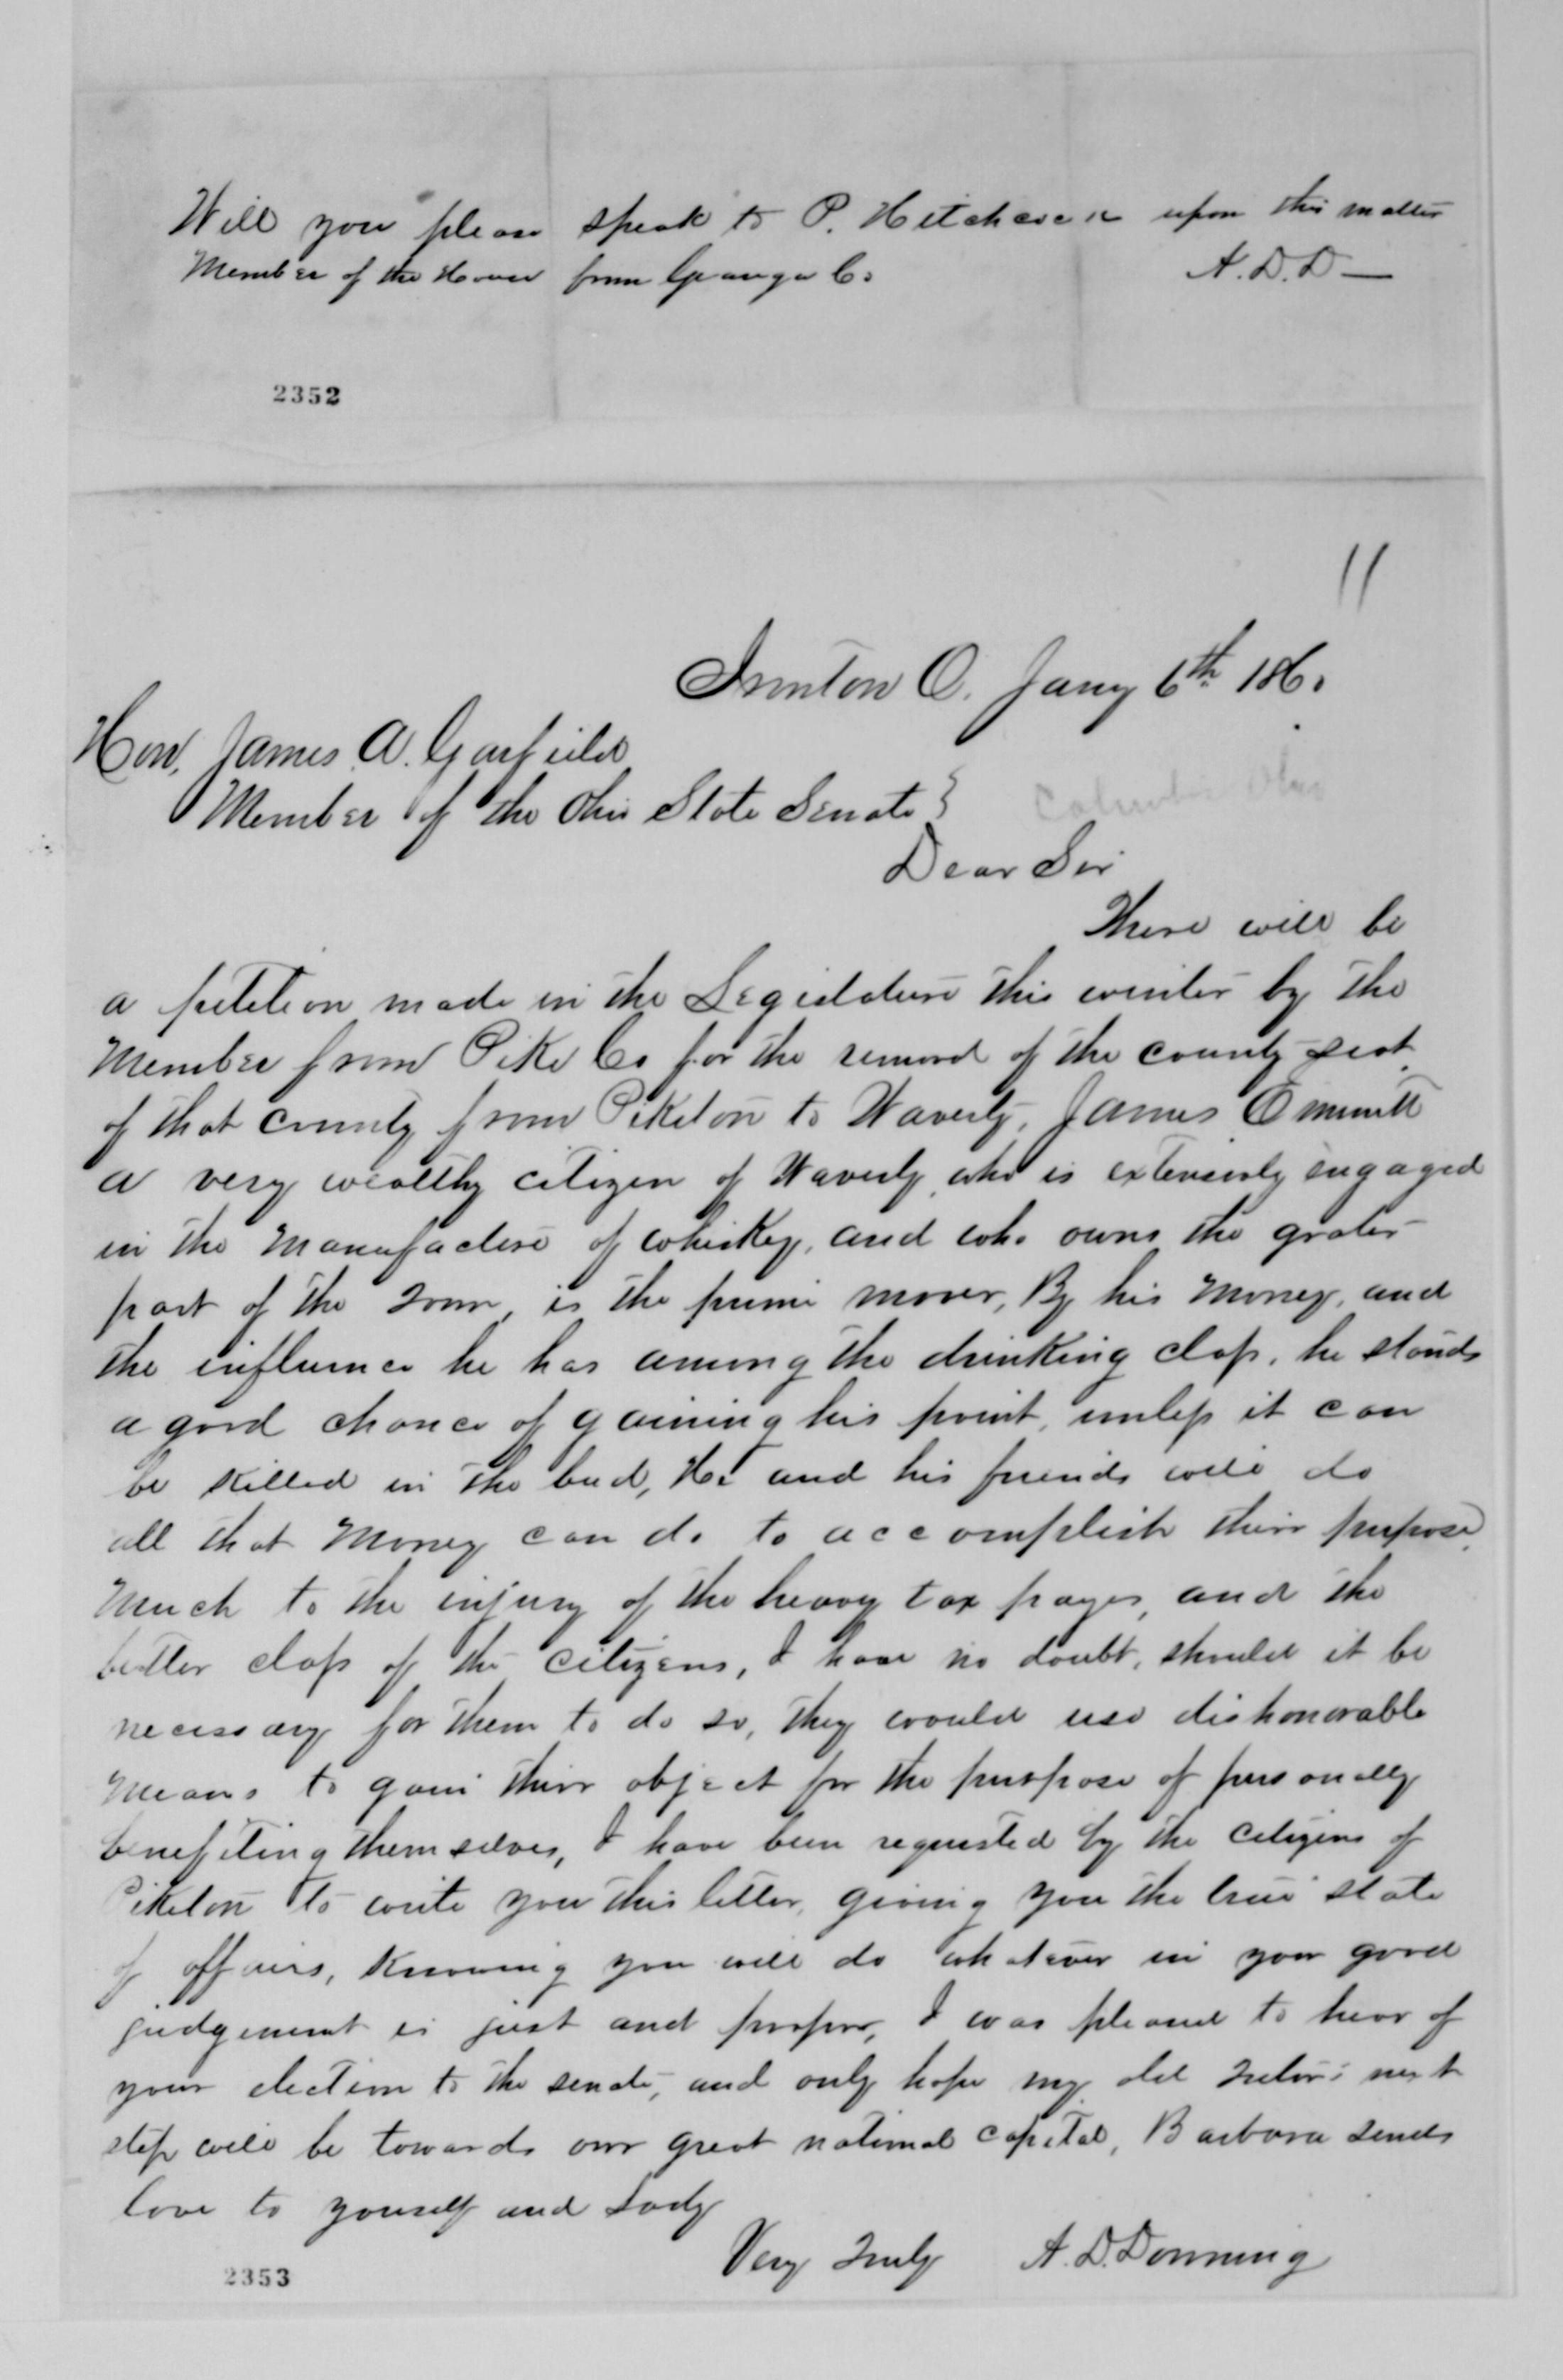 Will you please speak to P. Hitchcock upon this matter
Member of the House from Geauga Co A. D. D—
2352
11
Ironton O. Jany 6th 1860
Hon. James A. Garfield
Member of the Ohio State Senate }
Columbus Ohio
Dear Sir
There will be
a petition made in the Legislature this winter by the
Member from Pike Co for the removal of the county seat
of that county from Piketon to Waverly, James Emmitt
a very wealthy citizen of Waverly who is extensively engaged
in the Manufacture of whiskey, and who owns the grater
part of the Town, is the prime mover, By his Money, and
the influence he has among the drinking class, he stands
a good chance of gaining his point, unless it can
be killed in the bud, He and his friends will do
all that Money can do to accomplish their purpose,
Much to the injury of the heavy tax payers, and the
better class of the citizens, I have no doubt, should it be
necessary for them to do so, they would use dishonorable
Means to gain their object for the purpose of personally
benefiting themselves, I have been requested by the citizens of
Piketon to write you this letter, giving you the true state
of affairs, Knowing you will do whatever in your good
judgement is just and proper, I was pleased to hear of
your election to the senate, and only hope my old Tutors next
step will be towards our great national capital, Barbara sends
love to yourself and Lady
Very Truly A. D. Donning
2353